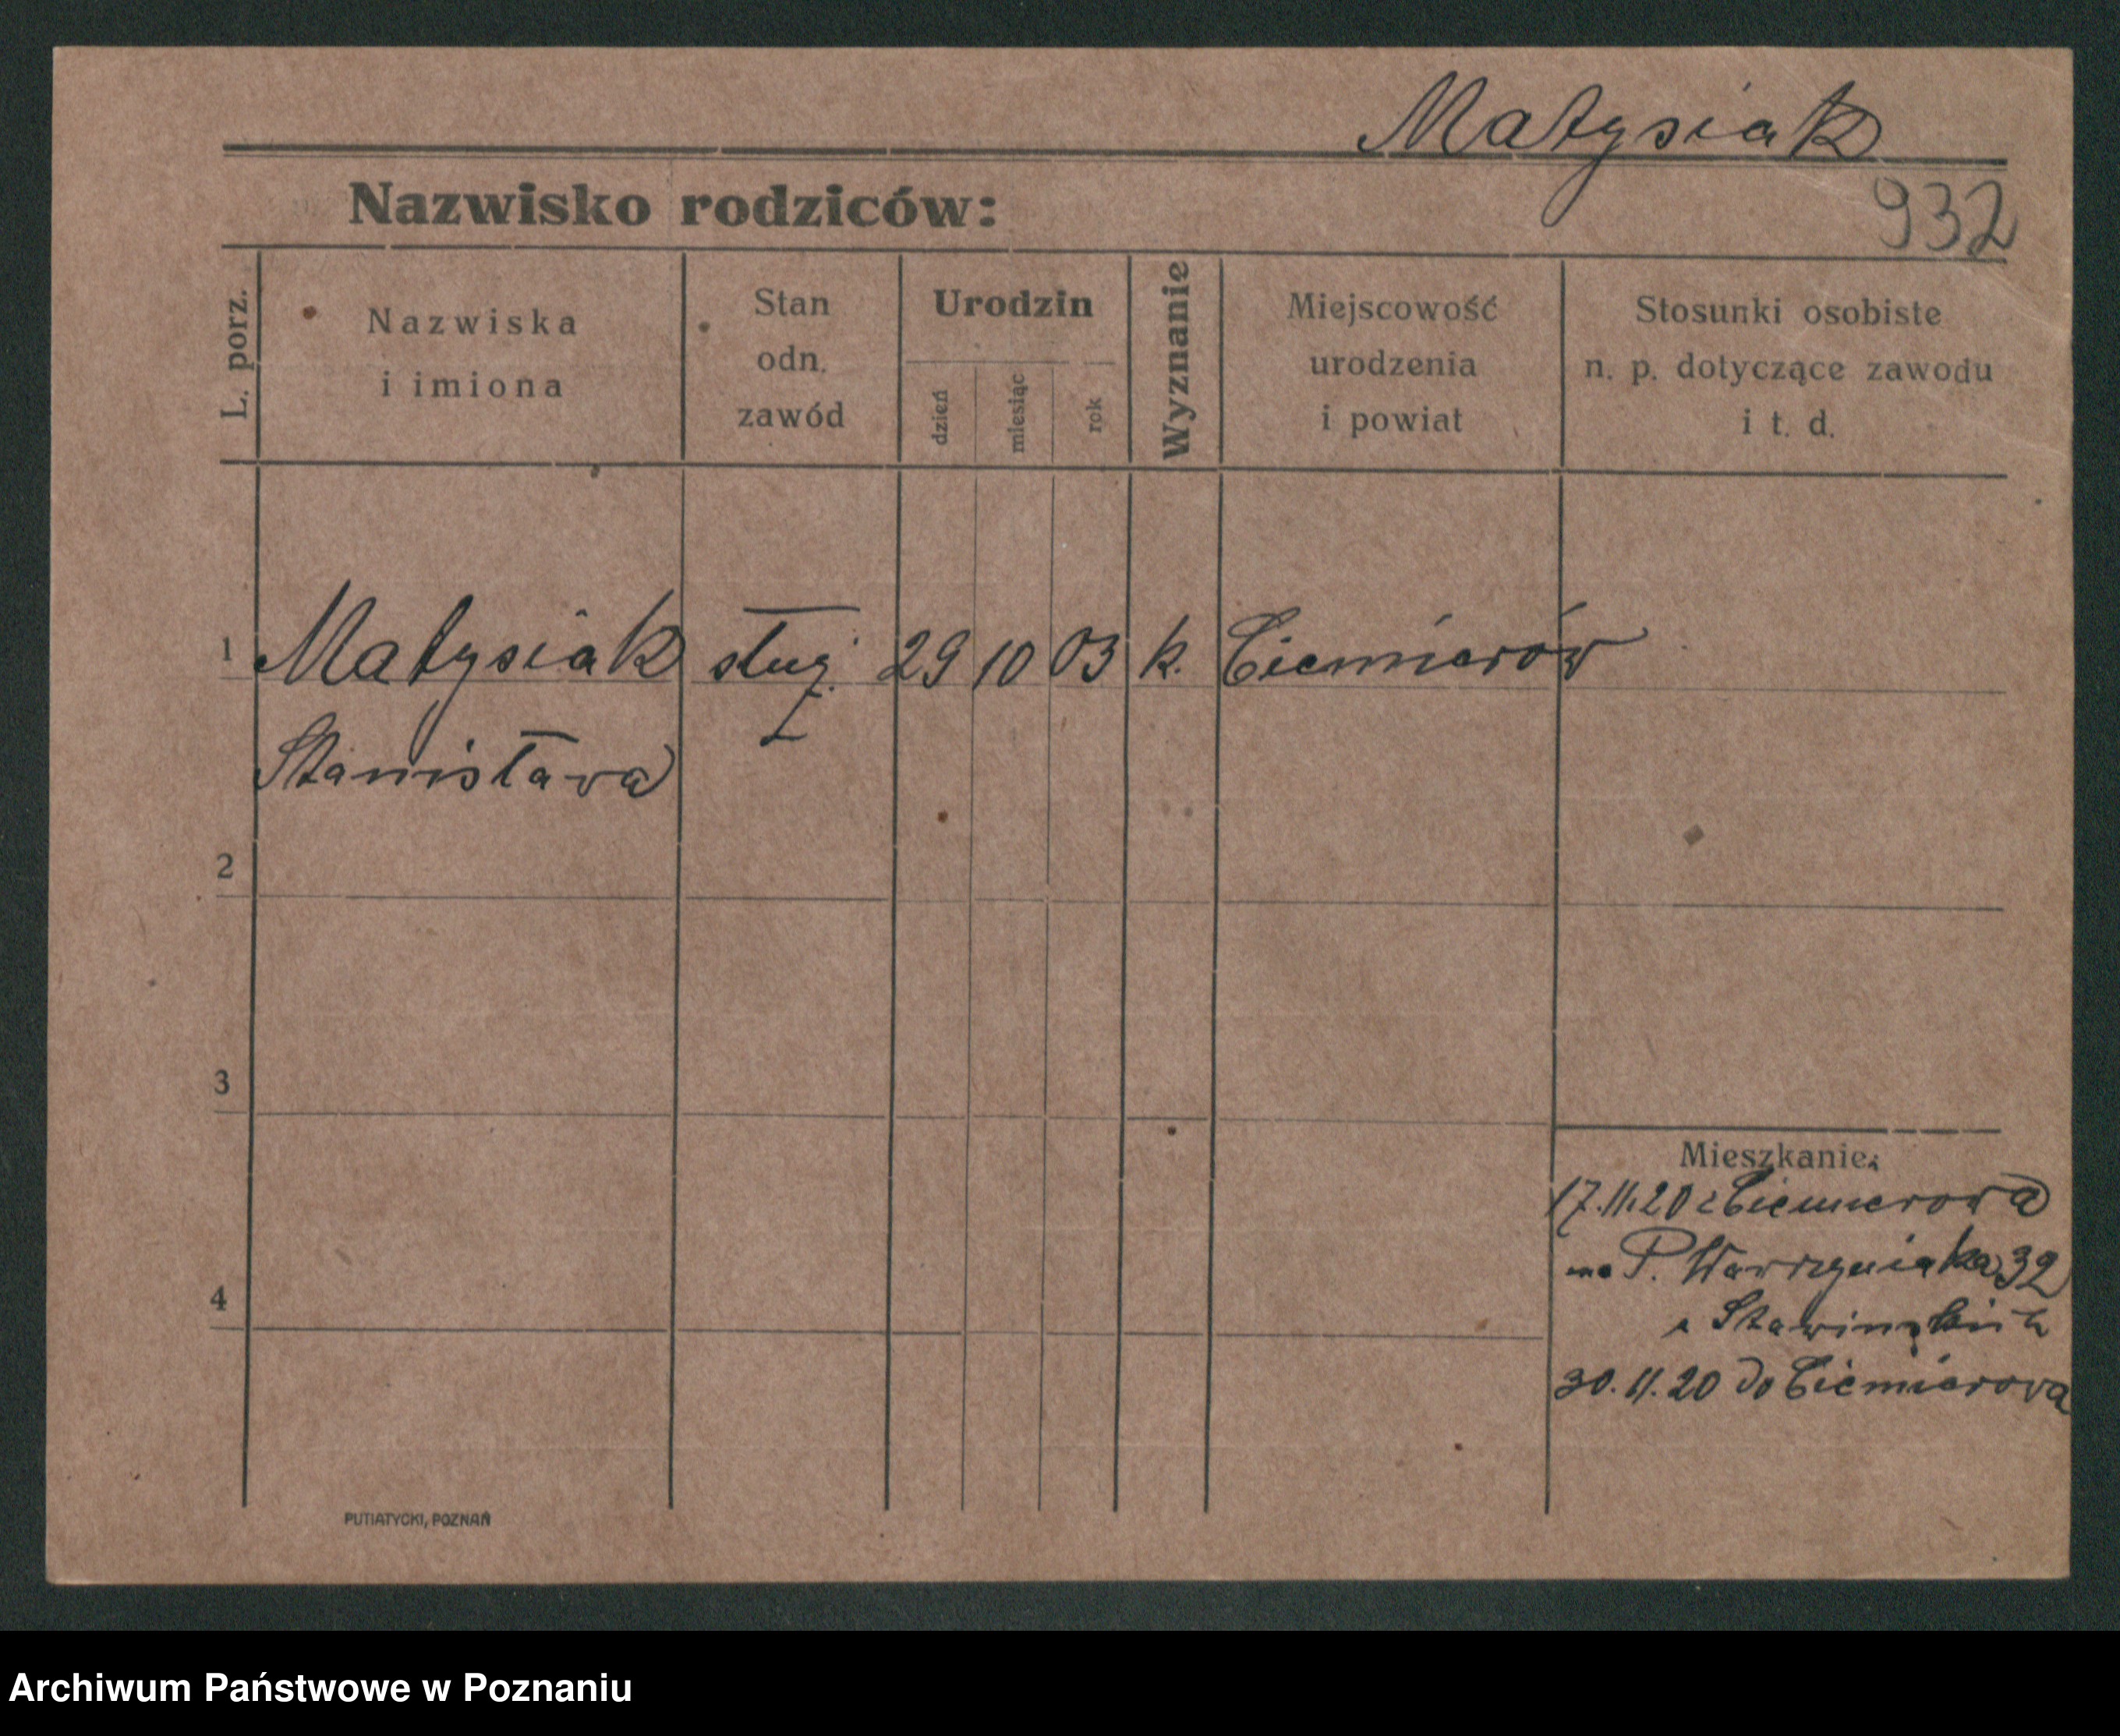 Matysiak
932
Nazwisko rodziców:
L. porz.
Nazwiska
i imiona
Stan
odn.
zawód
Urodzin
dzień
miesiąc
rok
Wyznanie
Miejscowość
urodzenia
i powiat
Stosunki osobiste
n. p. dotyczące zawodu
i t. d.
1 Matysiak służ. 29 10 03 k. Ciemierów
Stanisława
2
3
4
Mieszkanie:
17.11.20 z Ciemierowa
na P. Wawrzyniaka 32
30.11.20 do Ciemierowa
PUTIATYCKI, POZNAŃ
Archiwum Państwowe w Poznaniu